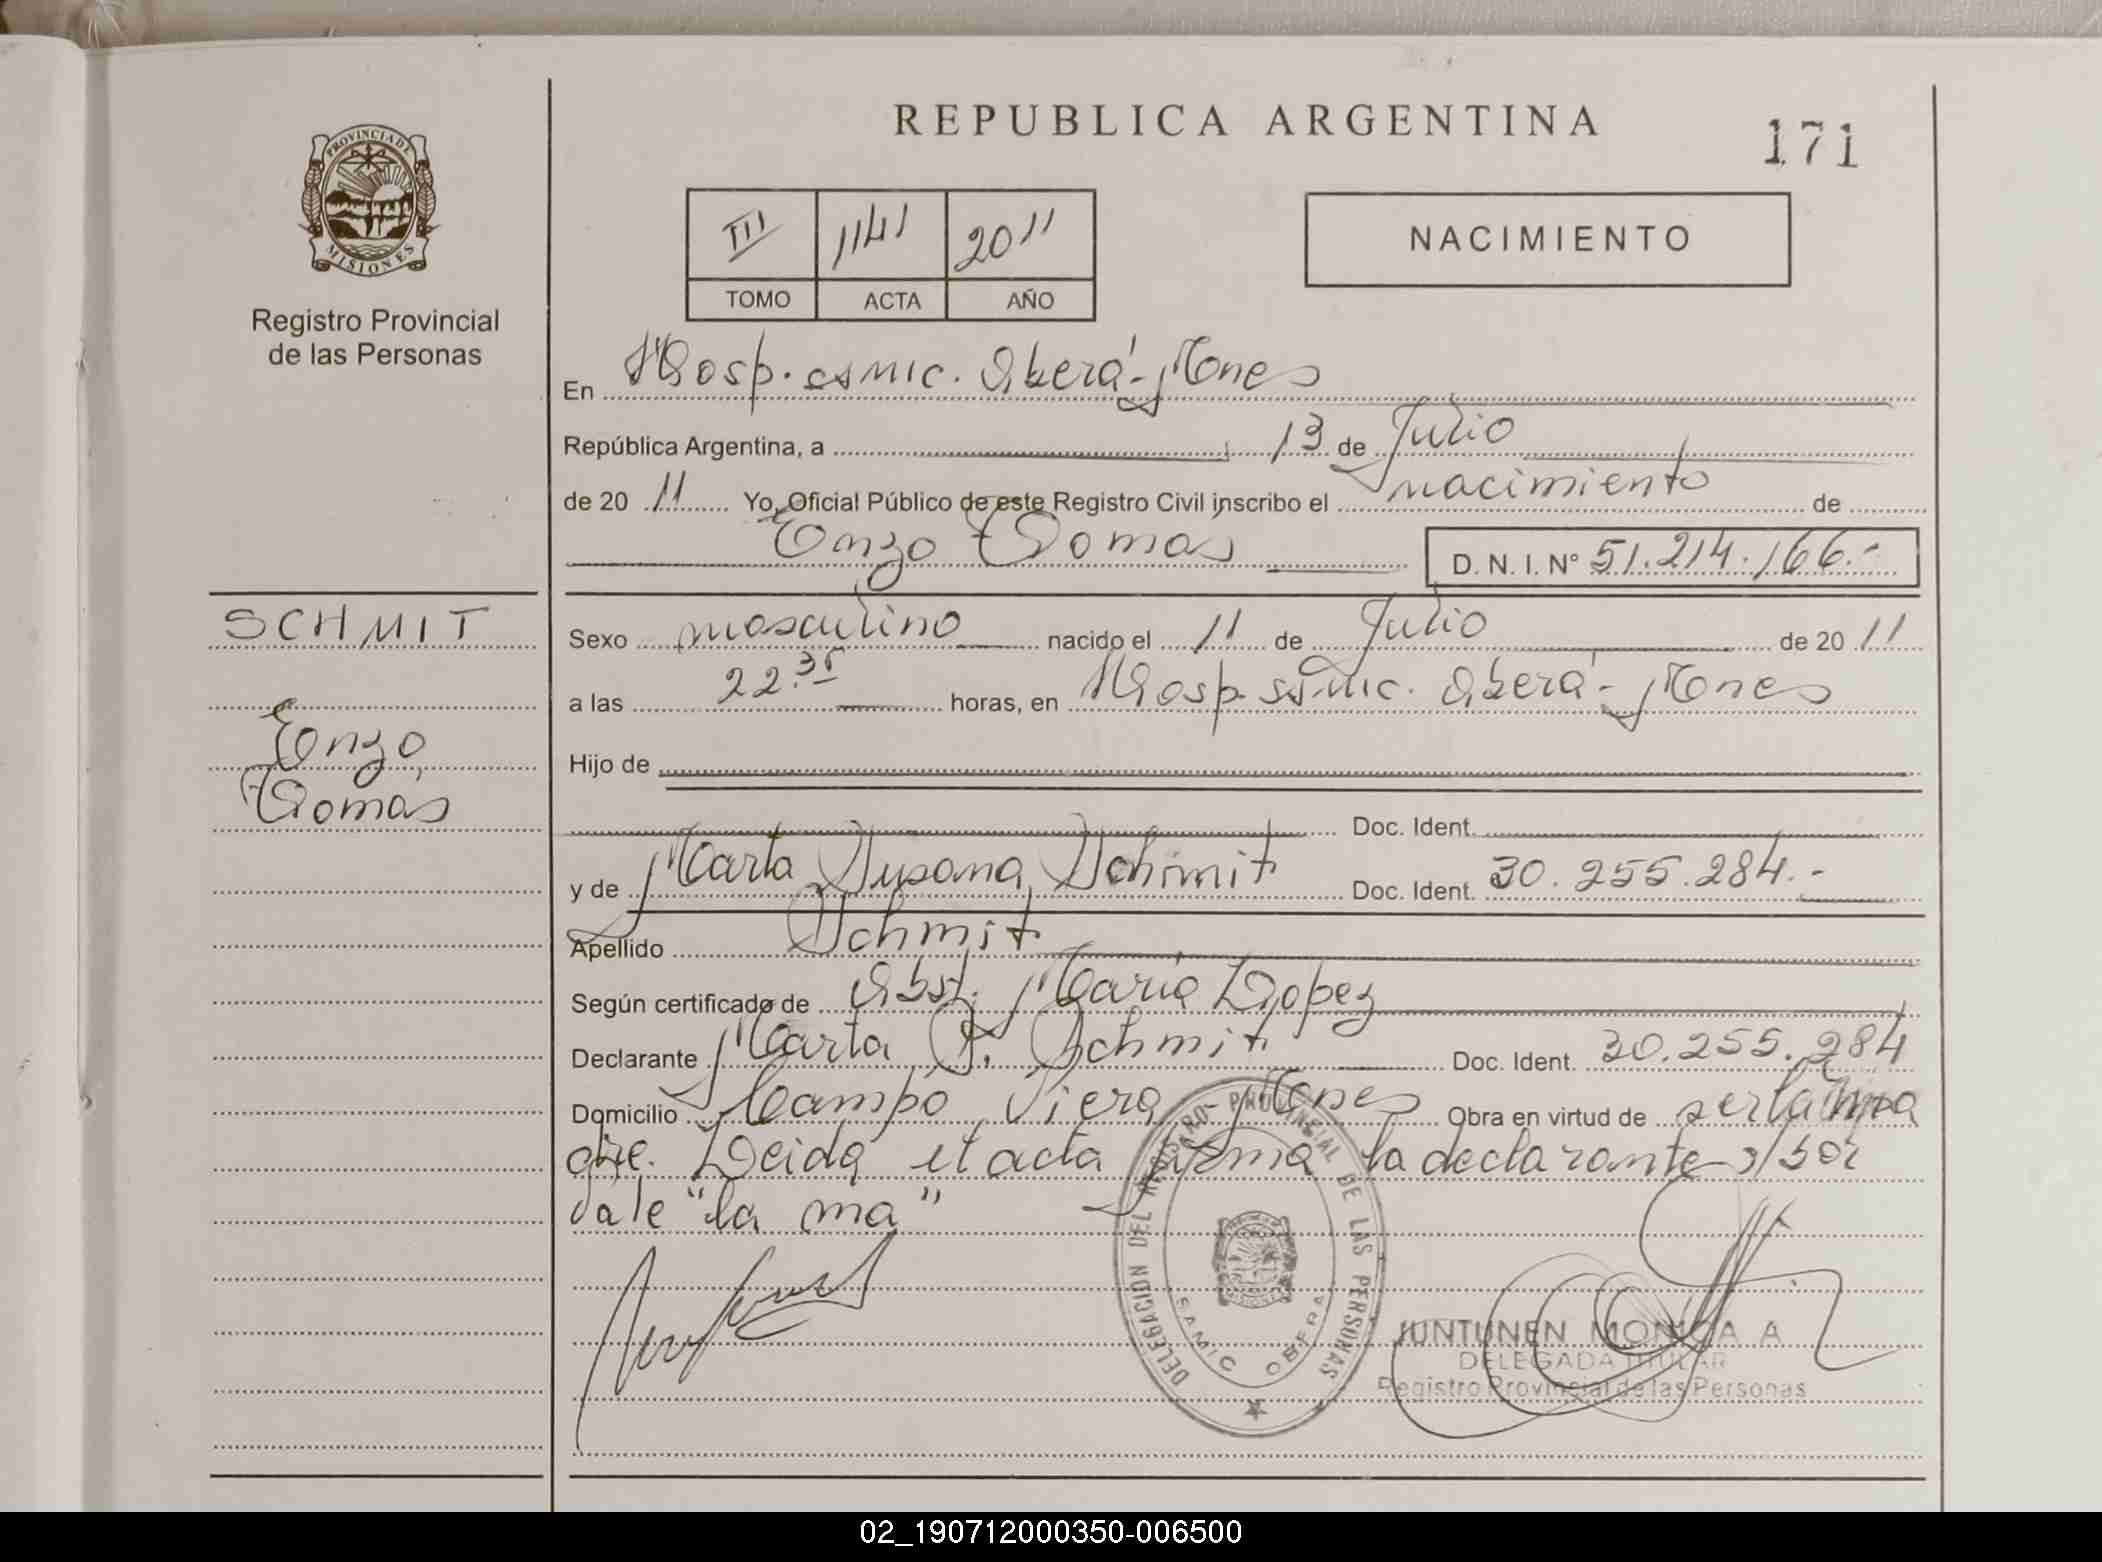 REPUBLICA ARGENTINA
171
PROVINCIA DE MISIONES
Registro Provincial
de las Personas
III 1141 2011
TOMO ACTA AÑO
NACIMIENTO
En Hosp. Samic. Oberá - Mnes
República Argentina, a 13 de Julio
de 20 11 Yo, Oficial Público de este Registro Civil inscribo el nacimiento de
Enzo Tomás
D. N. I. N° 51.214.166.-
SCHMIT
Enzo
Tomás
Sexo masculino nacido el 11 de Julio de 20 11
a las 22.35 horas, en Hosp. Samic. Oberá - Mnes
Hijo de
Doc. Ident.
y de Marta Susana Schmit Doc. Ident. 30.255.284.-
Apellido Schmit
Según certificado de Obst. María Lopez
Declarante Marta S. Schmit Doc. Ident. 30.255.284
Domicilio Campo Viera Mnes Obra en virtud de ser la
dre. Leida el acta firma la declarante s/bor
vale "la ma"
DELEGACION DEL REGISTRO PROVINCIAL DE LAS PERSONAS
SAMIC OBERA
JUNTUNEN MONICA A
DELEGADA TITULAR
Registro Provincial de las Personas
02_190712000350-006500